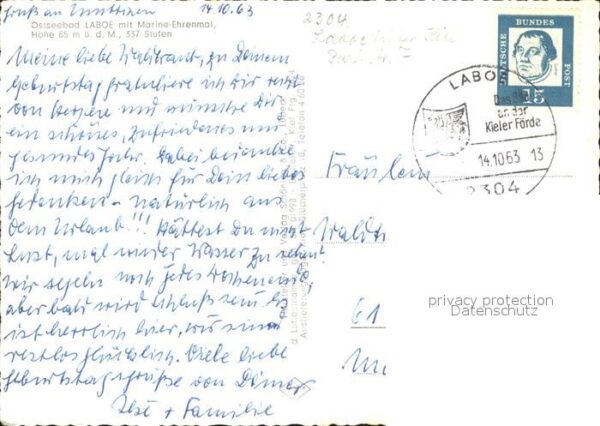 14.10.63
Ostseebad LABOE mit Marine-Ehrenmal,
Höhe 85 m ü. d. M., 337 Stufen
Meine liebe Waltraut, zu Deinem
Geburtstag gratuliere ich Dir recht
von Herzen und wünsche Dir
ein schönes, zufriedenes und
gesundes Jahr. Dabei bedanke
ich mich gleich für Dein liebes
Gedenken - natürlich aus
dem Urlaub!!! Hättest Du nicht
Lust, mal wieder Wasser zu sehen?
Wir segeln noch jedes Wochenende,
aber bald wird Schluß sein. Es
ist herrlich hier, wir sind
restlos glücklich. Viele liebe
Geburtstagsgrüße von Deiner
Ilse + Familie
2304
DEUTSCHE BUNDESPOST
15
LABOE
an der
Kieler Förde
14.10.63 13
2304
Fräulein
Waldt
61
privacy protection
Datenschutz